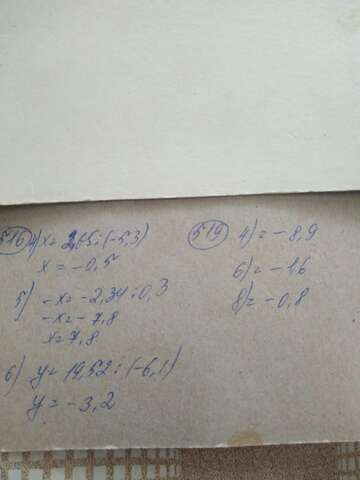 516 4) x = 2,65 : (-5,3)
x = -0,5
5) -x = -2,34 : 0,3
-x = -7,8
x = 7,8
6) y = 19,52 : (-6,1)
y = -3,2
519 4) = -8,9
6) = -1,6
8) = -0,8